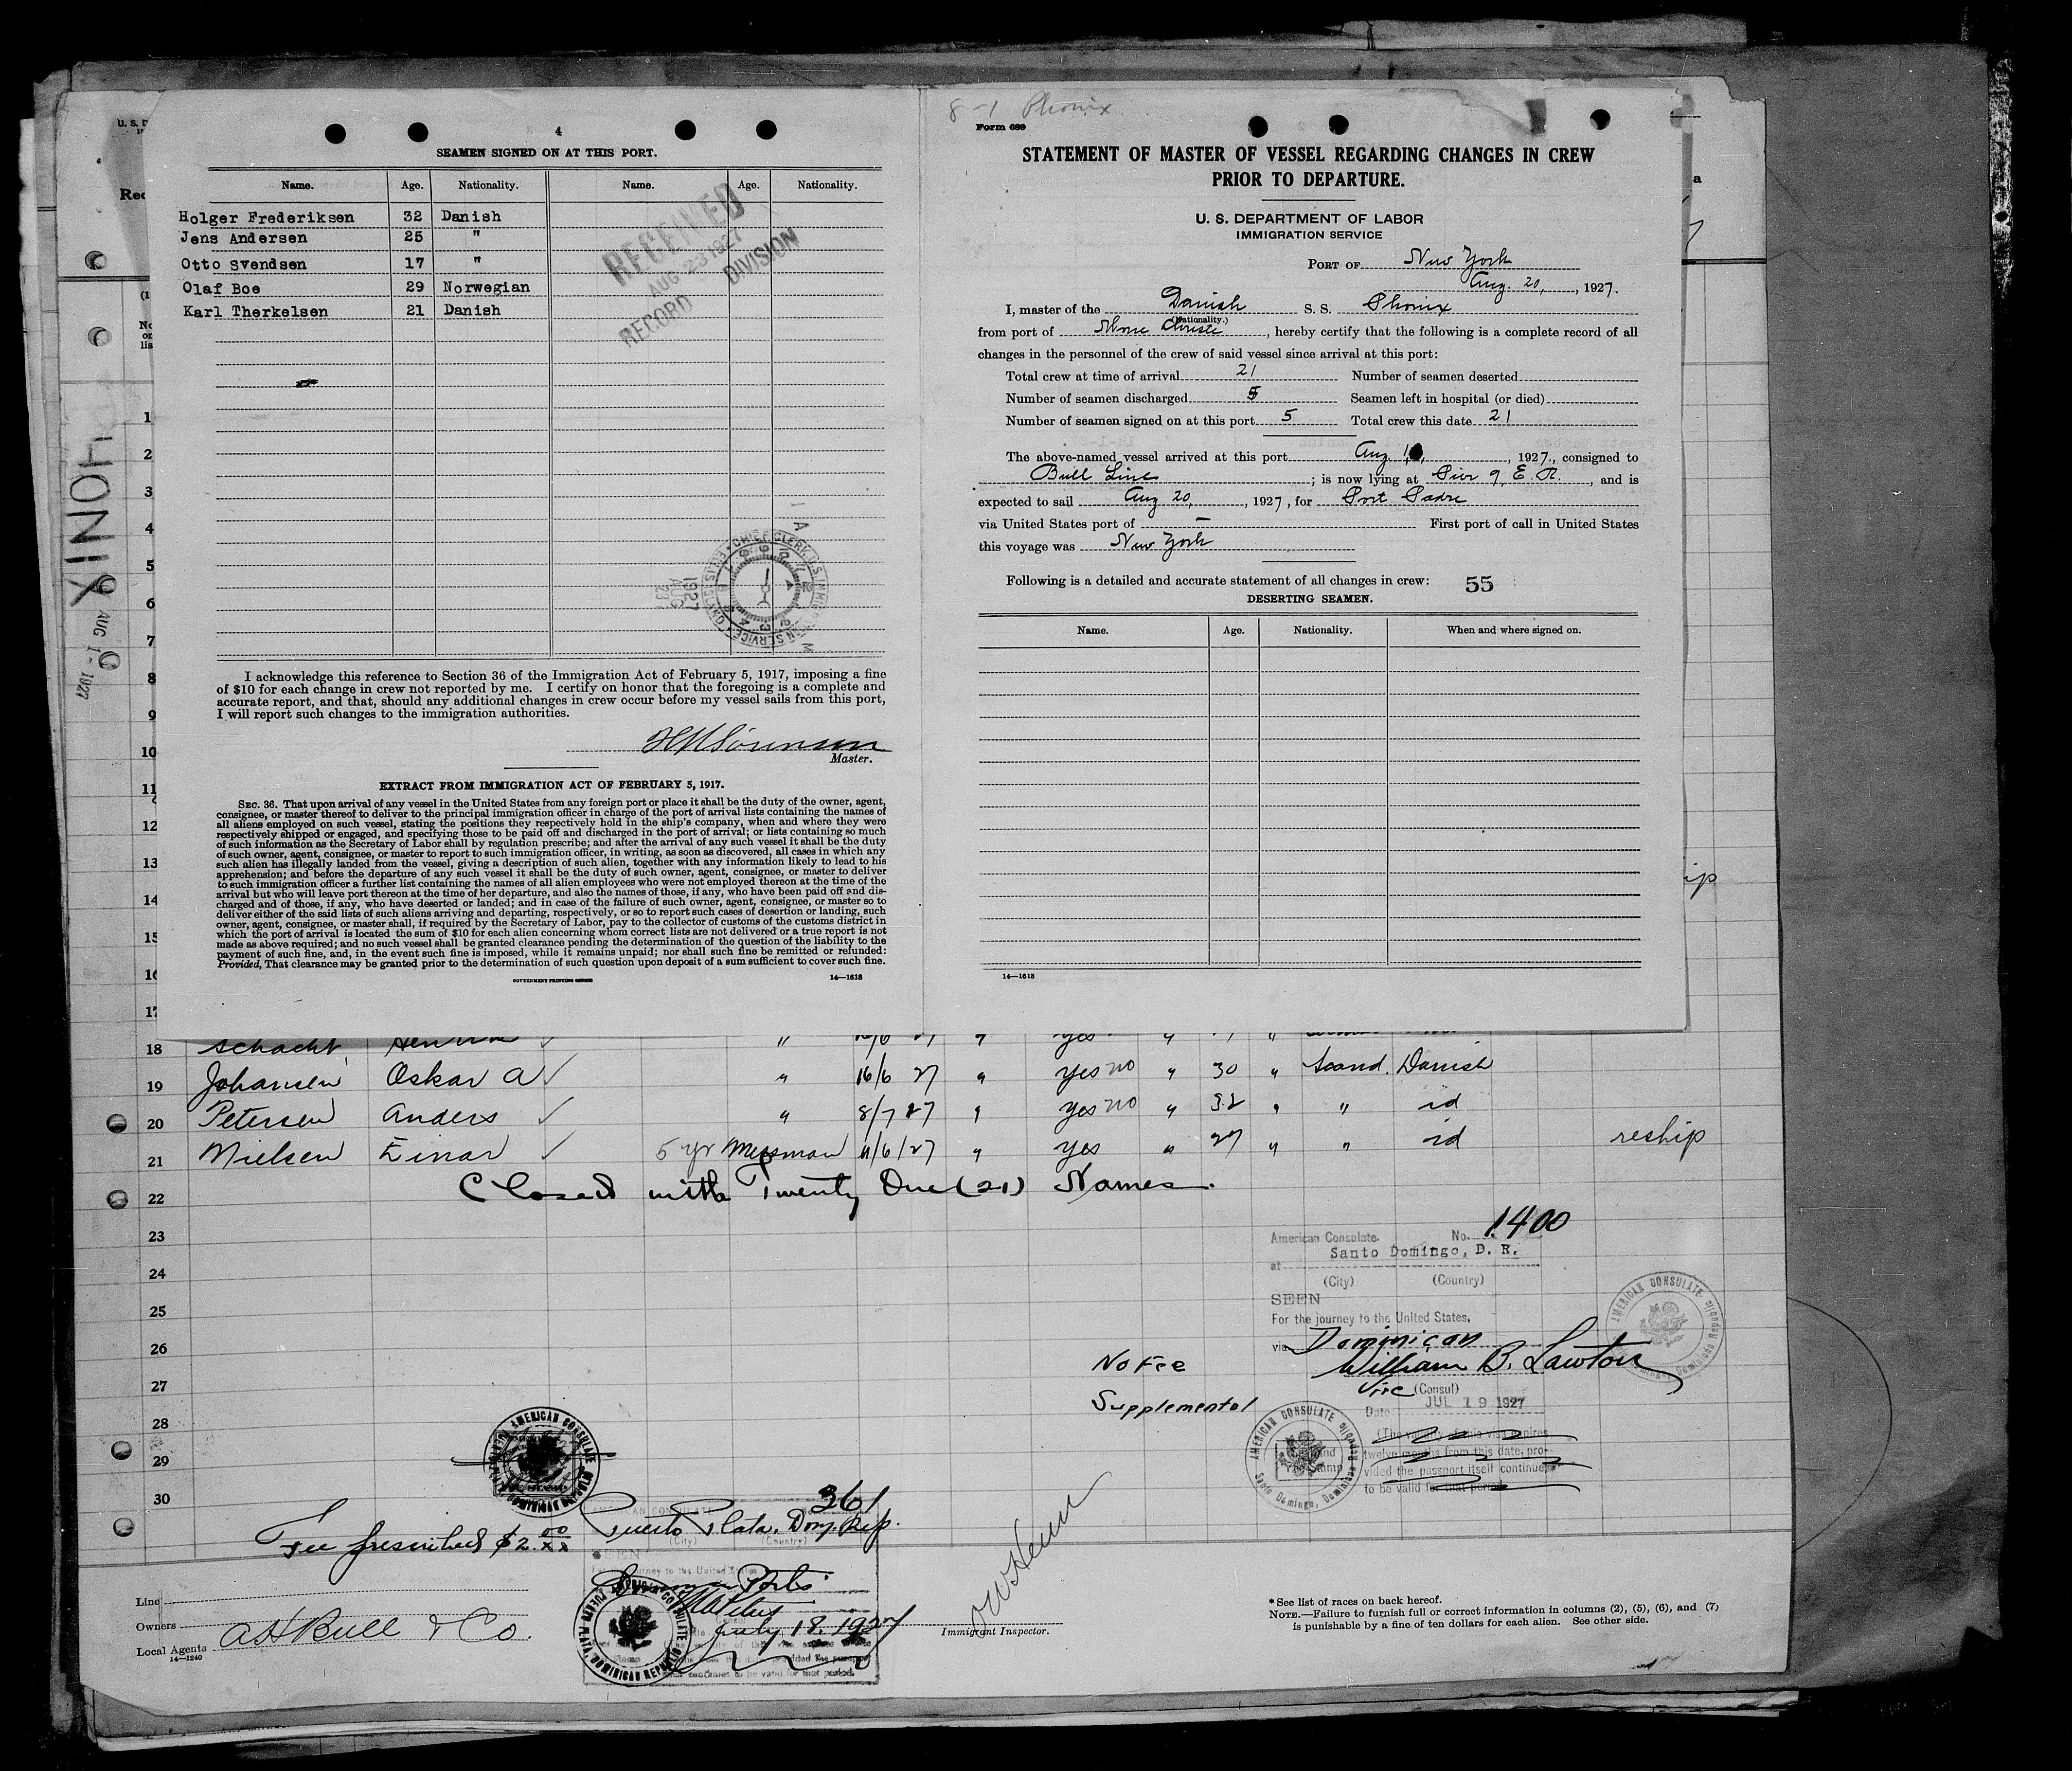 4
SEAMEN SIGNED ON AT THIS PORT.
Name. Age. Nationality. Name. Age. Nationality.
Holger Frederiksen 32 Danish
Jens Andersen 25 "
Otto Svendsen 17 "
Olaf Boe 29 Norwegian
Karl Therkelsen 21 Danish
RECEIVED
AUG 23 1927
RECORD DIVISION
1927
AUG
23
I acknowledge this reference to Section 36 of the Immigration Act of February 5, 1917, imposing a fine
of $10 for each change in crew not reported by me. I certify on honor that the foregoing is a complete and
accurate report, and that, should any additional changes in crew occur before my vessel sails from this port,
I will report such changes to the immigration authorities.
Master.
EXTRACT FROM IMMIGRATION ACT OF FEBRUARY 5, 1917.
SEC. 36. That upon arrival of any vessel in the United States from any foreign port or place it shall be the duty of the owner, agent,
consignee, or master thereof to deliver to the principal immigration officer in charge of the port of arrival lists containing the names of
all aliens employed on such vessel, stating the positions they respectively hold in the ship's company, when and where they were
respectively shipped or engaged, and specifying those to be paid off and discharged in the port of arrival; or lists containing so much
of such information as the Secretary of Labor shall by regulation prescribe; and after the arrival of any such vessel it shall be the duty
of such owner, agent, consignee, or master to report to such immigration officer, in writing, as soon as discovered, all cases in which any
such alien has illegally landed from the vessel, giving a description of such alien, together with any information likely to lead to his
apprehension; and before the departure of any such vessel it shall be the duty of such owner, agent, consignee, or master to deliver
to such immigration officer a further list containing the names of all alien employees who were not employed thereon at the time of the
arrival but who will leave port thereon at the time of her departure, and also the names of those, if any, who have been paid off and dis-
charged and of those, if any, who have deserted or landed; and in case of the failure of such owner, agent, consignee, or master so to
deliver either of the said lists of such aliens arriving and departing, respectively, or so to report such cases of desertion or landing, such
owner, agent, consignee, or master shall, if required by the Secretary of Labor, pay to the collector of customs of the customs district in
which the port of arrival is located the sum of $10 for each alien concerning whom correct lists are not delivered or a true report is not
made as above required; and no such vessel shall be granted clearance pending the determination of the question of the liability to the
payment of such fine, and, in the event such fine is imposed, while it remains unpaid; nor shall such fine be remitted or refunded:
Provided, That clearance may be granted prior to the determination of such question upon deposit of a sum sufficient to cover such fine.
GOVERNMENT PRINTING OFFICE 14—1613
8-1 Phonix
Form 689
STATEMENT OF MASTER OF VESSEL REGARDING CHANGES IN CREW
PRIOR TO DEPARTURE.
U. S. DEPARTMENT OF LABOR
IMMIGRATION SERVICE
PORT OF New York
Aug. 20, , 1927.
I, master of the Danish S. S. Phonix
(Nationality.)
from port of , hereby certify that the following is a complete record of all
changes in the personnel of the crew of said vessel since arrival at this port:
Total crew at time of arrival 21 Number of seamen deserted
Number of seamen discharged 5 Seamen left in hospital (or died)
Number of seamen signed on at this port 5 Total crew this date 21
The above-named vessel arrived at this port Aug. , 1927., consigned to
Bull Line ; is now lying at Pier 9, E. R. , and is
expected to sail Aug 20, , 1927, for Port Padre
via United States port of — First port of call in United States
this voyage was New York
Following is a detailed and accurate statement of all changes in crew: 55
DESERTING SEAMEN.
Name. Age. Nationality. When and where signed on.
14—1613
PHONIX
AUG 1- 1927
1
2
3
4
5
6
7
8
9
10
11
12
13
14
15
16
17
18 Schacht
19 Johansen Oskar A " 16/6 27 " yes no " 30 " Scand. Danish
20 Petersen Anders " 8/7 27 " yes no " 32 " " id
21 Nielsen Einar 5 yr Messman 11/6/27 " yes " 27 " " id reship
22 Closed with Twenty One (21) Names.
23
24
25
26
27
28
29
30
American Consulate. No. 1400
at Santo Domingo, D. R.
(City) (Country)
SEEN
For the journey to the United States,
via Dominican
William B. Lawton
Vice (Consul)
Date JUL 19 1927
twelve months from this date, pro-
vided the passport itself continues
to be valid for that period.
No Fee
Supplemental
AMERICAN CONSULATE
Santo Domingo, Dominican Republic
AMERICAN CONSULATE
PUERTO PLATA, DOMINICAN REPUBLIC
361
Puerto Plata, Dom. Rep.
(City) (Country)
Fee prescribed $2.00
July 18, 1927
Line
Owners
Local Agents A H Bull & Co.
14—1240
Immigrant Inspector.
* See list of races on back hereof.
NOTE.—Failure to furnish full or correct information in columns (2), (5), (6), and (7)
is punishable by a fine of ten dollars for each alien. See other side.